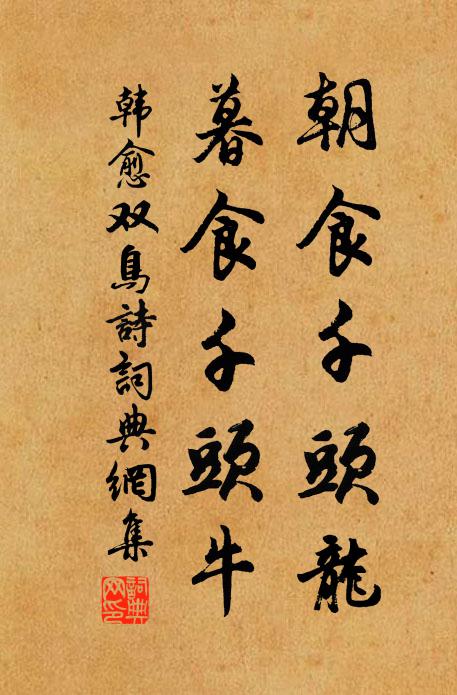 朝食千頭龍
暮食千頭牛
韩愈双鳥詩詞典網集
詞典网印